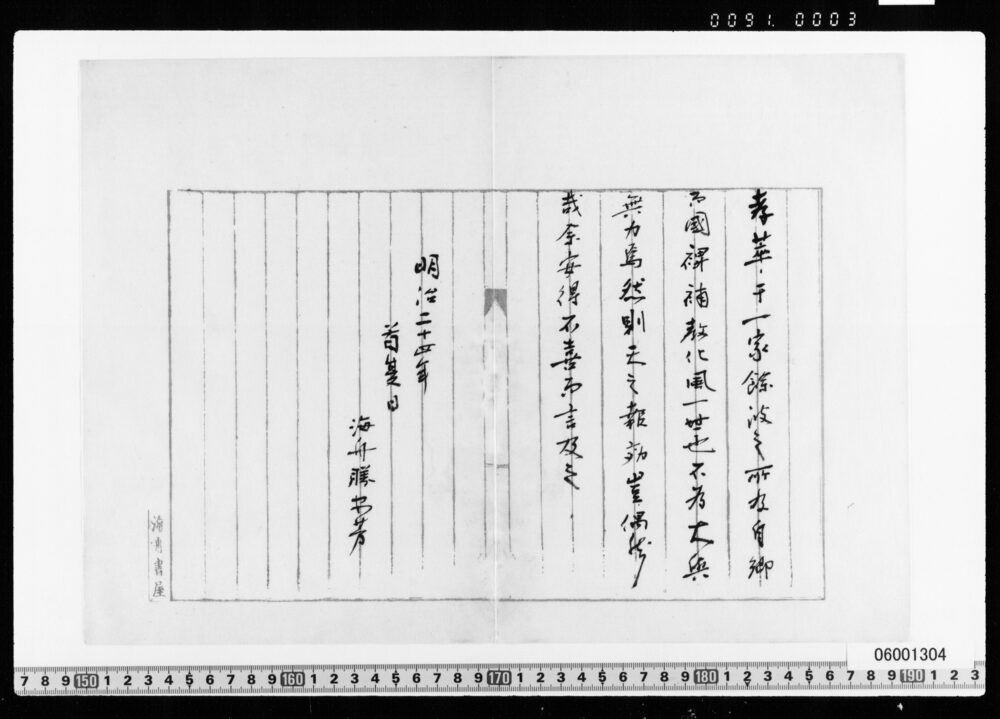 0091. 0003
孝萃于一家餘波之所及自郷
而國裨補教化風一世也不為大與
無力焉然則天之報効豈偶然
哉余安得不喜而言及之
明治二十四年
首夏日
海舟勝安芳
書屋
06001304
7 8 9 150 1 2 3 4 5 6 7 8 9 160 1 2 3 4 5 6 7 8 9 170 1 2 3 4 5 6 7 8 9 180 1 2 3 4 5 6 7 8 9 190 1 2 3